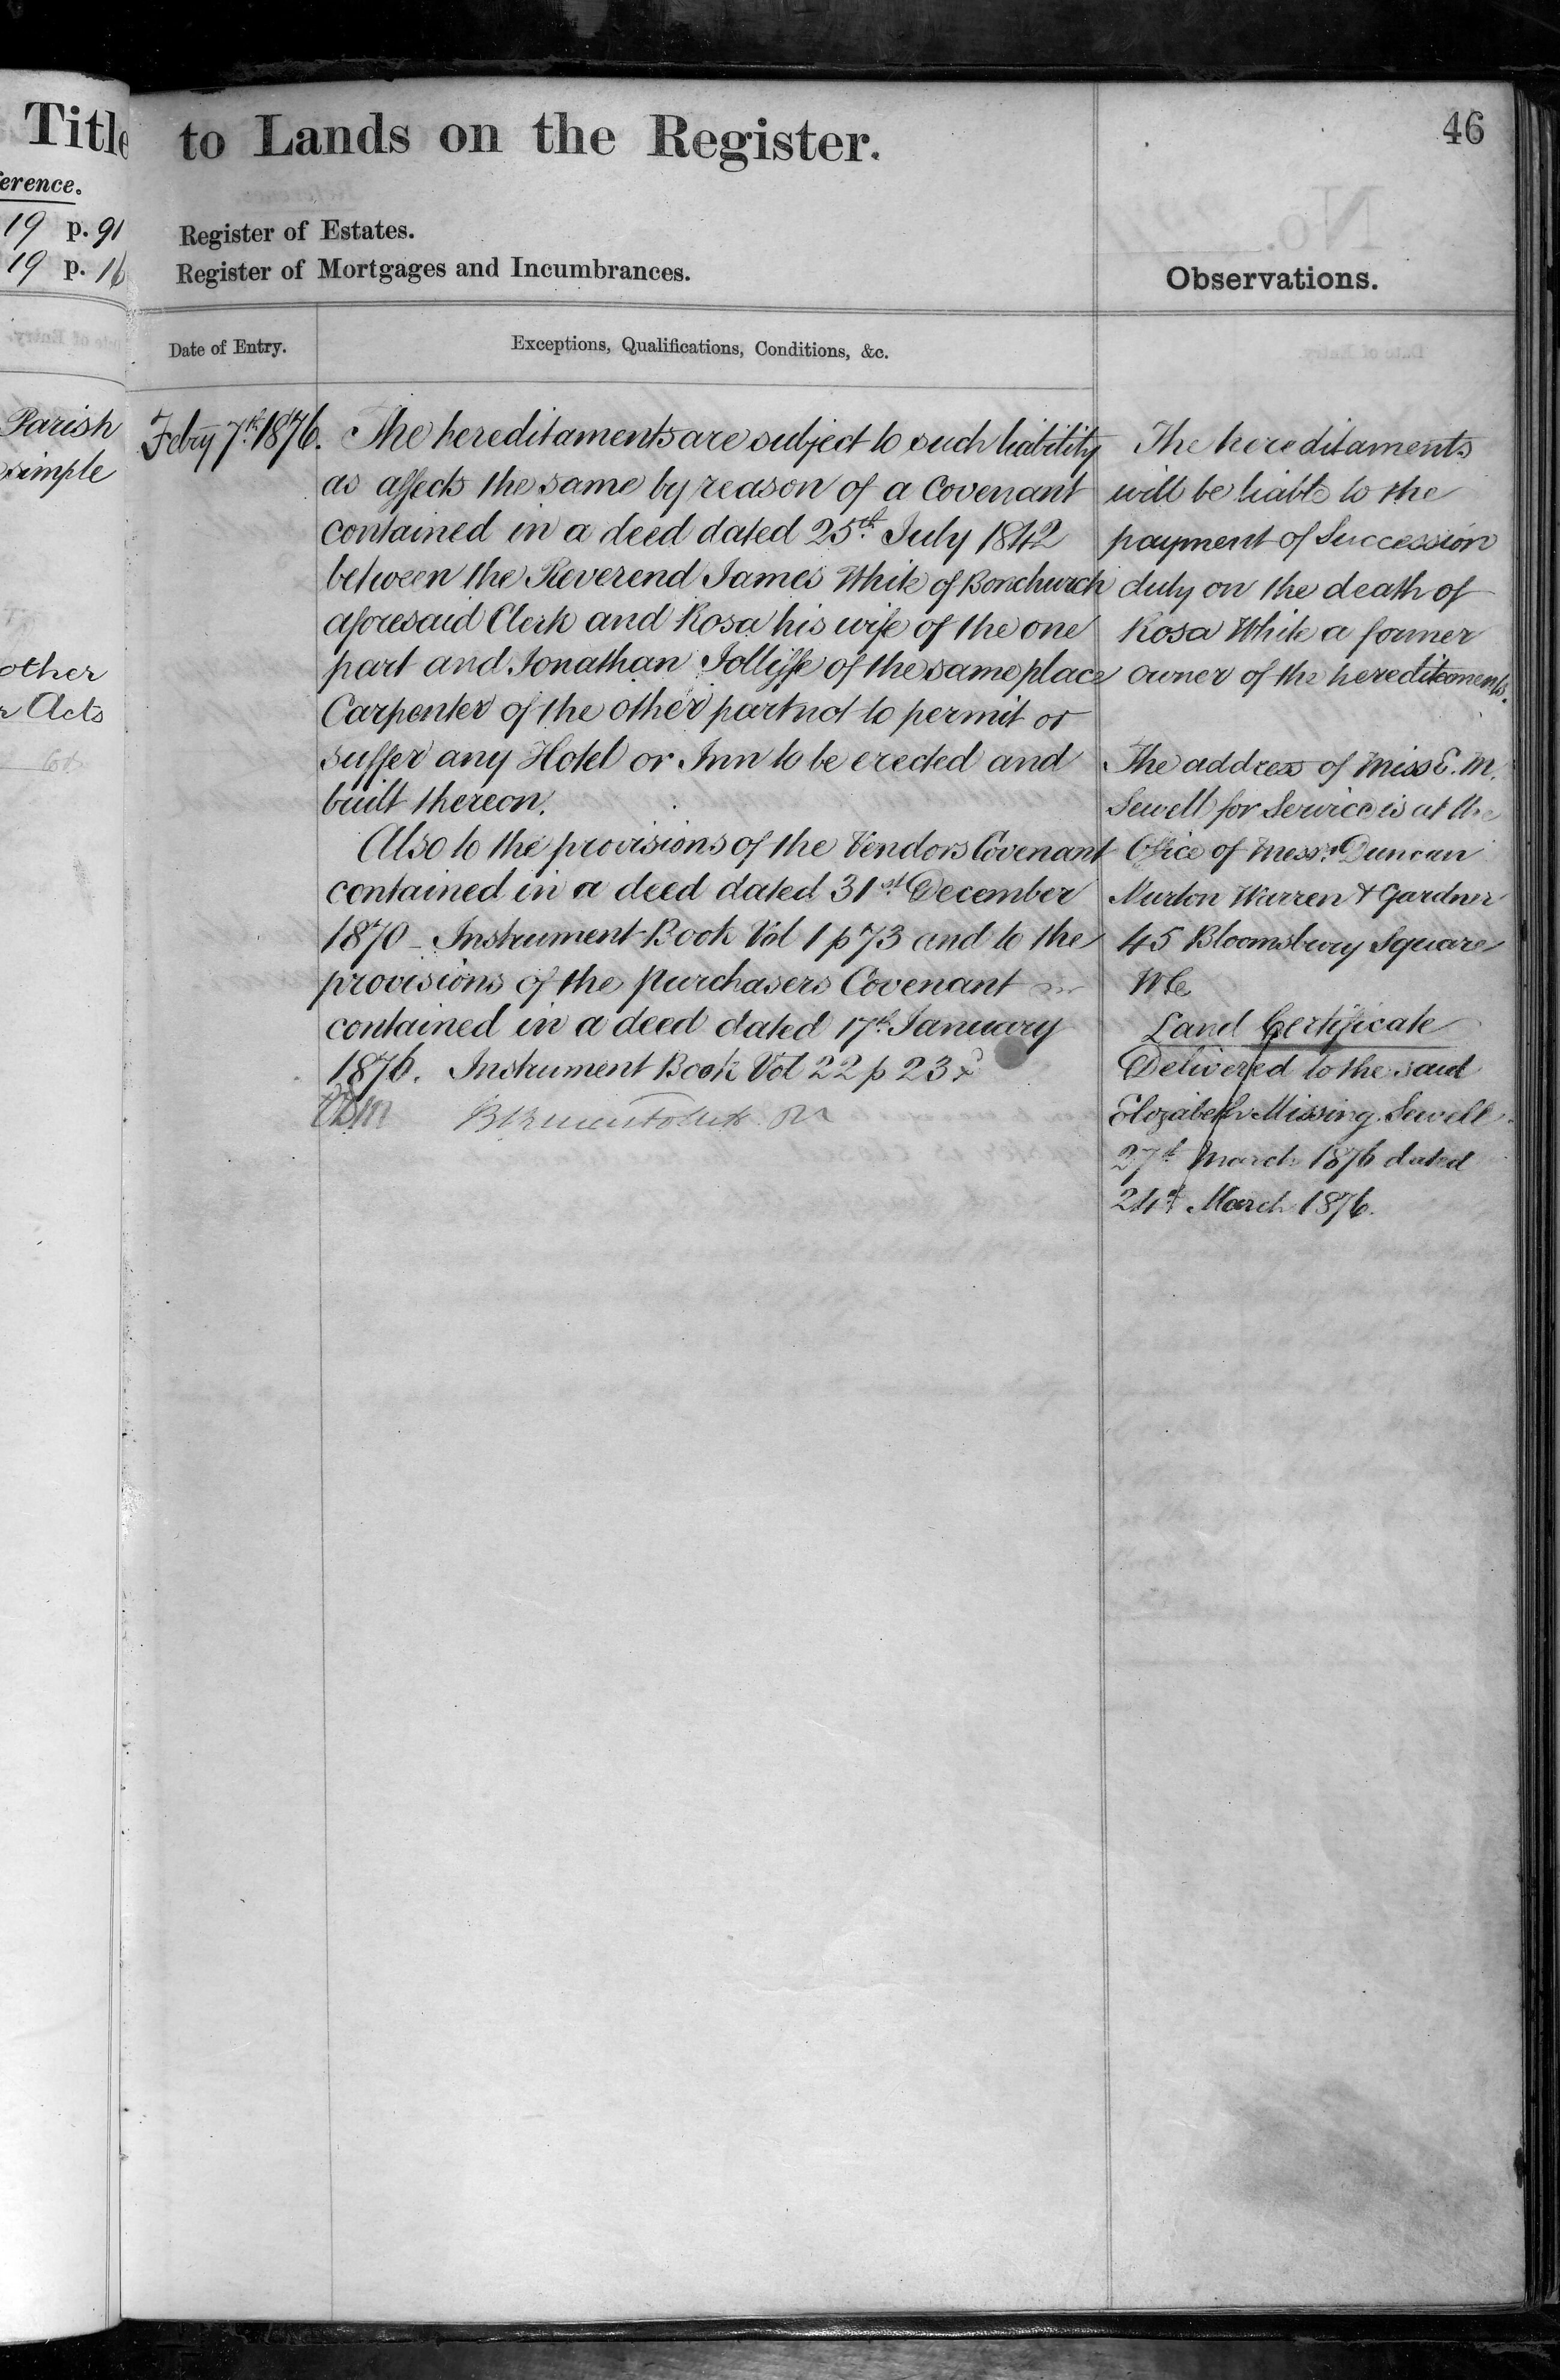 Title
erence.
19 p. 91
19 p. 16
Parish
simple
other
Acts
to Lands on the Register.
46
Register of Estates.
Register of Mortgages and Incumbrances.
Observations.
Date of Entry.
Exceptions, Qualifications, Conditions, &c.
Febry 7th 1876.
The hereditaments are subject to such liability
as affects the same by reason of a Covenant
contained in a deed dated 25th July 1842
between the Reverend James White of Bonchurch
aforesaid Clerk and Rosa his wife of the one
part and Jonathan Jolliffe of the same place
Carpenter of the other part not to permit or
suffer any Hotel or Inn to be erected and
built thereon.
Also to the provisions of the Vendors Covenant
contained in a deed dated 31st December
1870 - Instrument Book Vol 1 p 73 and to the
provisions of the Purchasers Covenant
contained in a deed dated 17th January
1876. Instrument Book Vol 22 p 23
The hereditaments
will be liable to the
payment of Succession
duty on the death of
Rosa White a former
owner of the hereditaments.
The address of Miss E. M.
Sewell for Service is at the
Office of Messrs Duncan
Murton Warren & Gardner
45 Bloomsbury Square
WC
Land Certificate
Delivered to the said
Elizabeth Missing Sewell
27th March 1876 dated
24th March 1876.